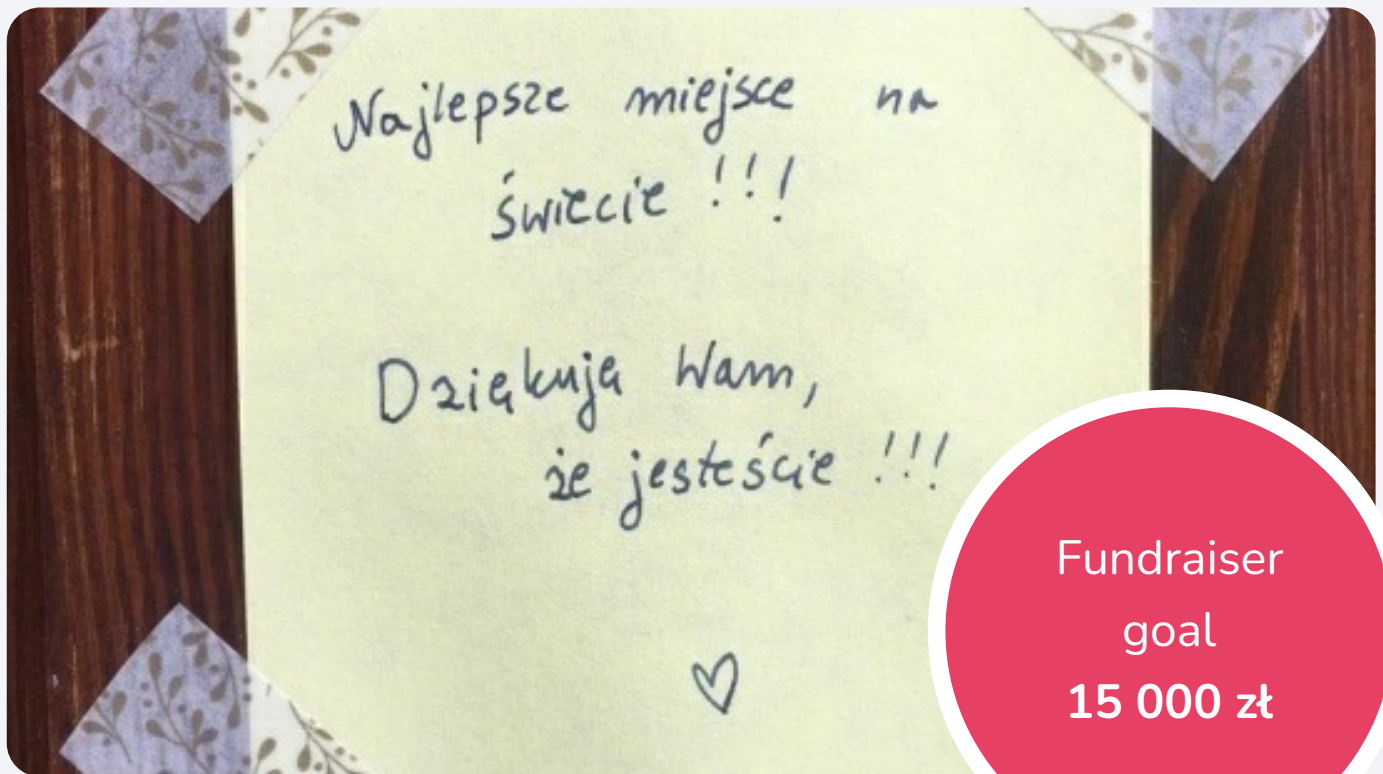 Najlepsze miejsce na
świecie !!!
Dziękuję Wam,
że jesteście !!!
Fundraiser
goal
15 000 zł